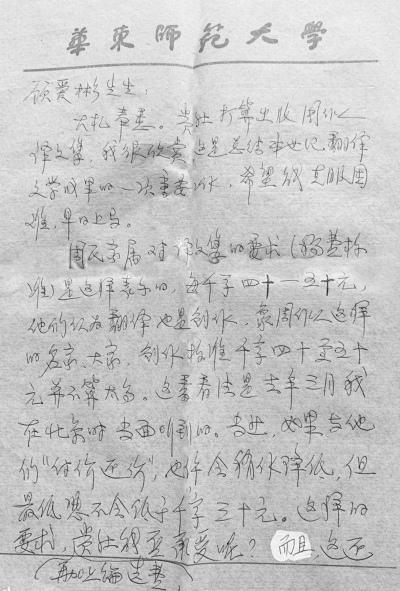 華東師范大學
顾爱彬先生：
大札奉悉。贵社打算出版周作人
译文集，我很欣赏，这是总结本世纪翻译
文学成果的一次重要工作，希望能克服困
难，早日上马。
周氏家属对译文集的要求（稿费标
准）是这样表示的，每千字四十—五十元，
他们认为翻译也是创作，象周作人这样
的名家、大家，创作标准千字四十至五十
元并不算太高。这番看法是去年三月我
在北京时当面听到的。当然，如果与他
们"讨价还价"，也许会稍作降低，但
最低恐不会低于千字三十元。这样的
要求，贵社能否承受呢？而且，这还
要加上编选费